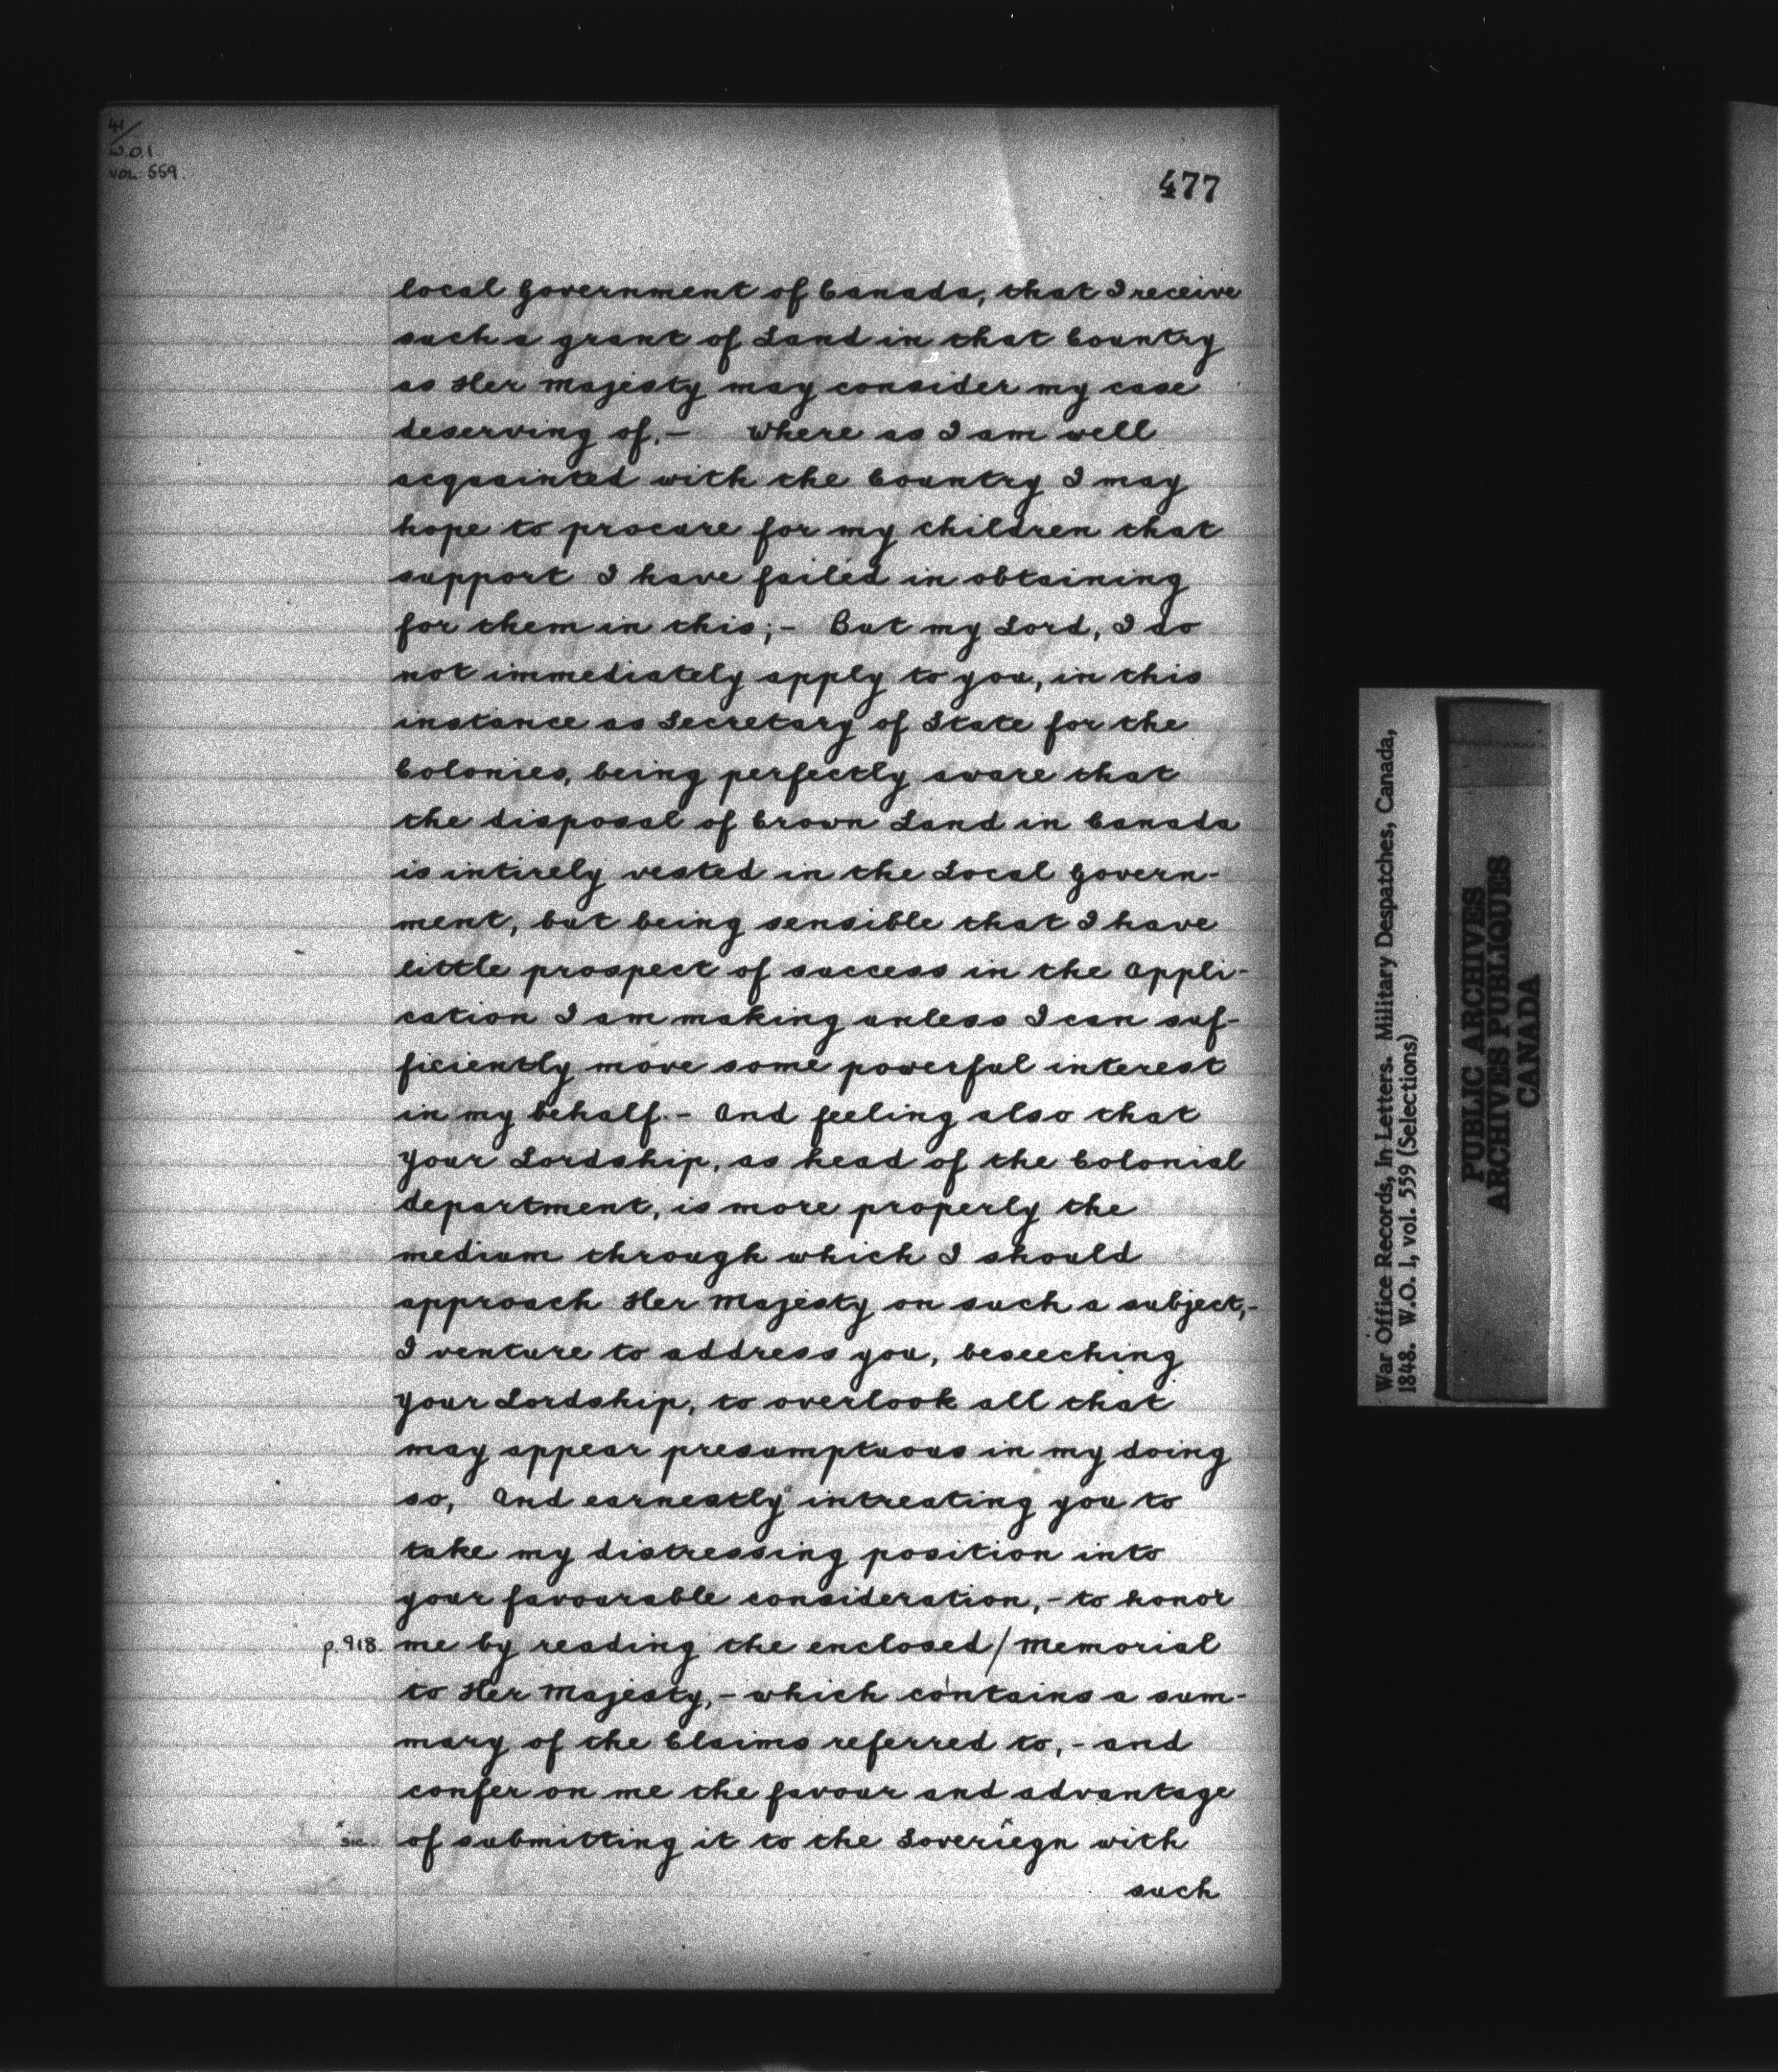 41/
W.O.1.
VOL: 559.
477
local Government of Canada, that I receive
such a grant of Land in that Country
as Her Majesty may consider my case
deserving of.- Where as I am well
acquainted with the Country I may
hope to procure for my children that
support I have failed in obtaining
for them in this;- But my Lord, I do
not immediately apply to you, in this
instance as Secretary of State for the
Colonies, being perfectly aware that
the disposal of Crown Land in Canada
is intirely vested in the Local Govern-
ment, but being sensible that I have
little prospect of success in the Appli-
cation I am making unless I can suf-
ficiently move some powerful interest
in my behalf.- And feeling also that
Your Lordship, as head of the Colonial
department, is more properly the
medium through which I should
approach Her Majesty on such a subject,-
I venture to address you, beseeching
Your Lordship, to overlook all that
may appear presumptuous in my doing
so, And earnestly intreating you to
take my distressing position into
your favourable consideration,- to honor
p.918. me by reading the enclosed/Memorial
to Her Majesty,- which contains a sum-
mary of the Claims referred to,- and
confer on me the favour and advantage
"sic. of submitting it to the Soveriegn with
such
War Office Records, In Letters. Military Despatches, Canada,
1848. W.O. 1, vol. 559 (Selections)
PUBLIC ARCHIVES
ARCHIVES PUBLIQUES
CANADA